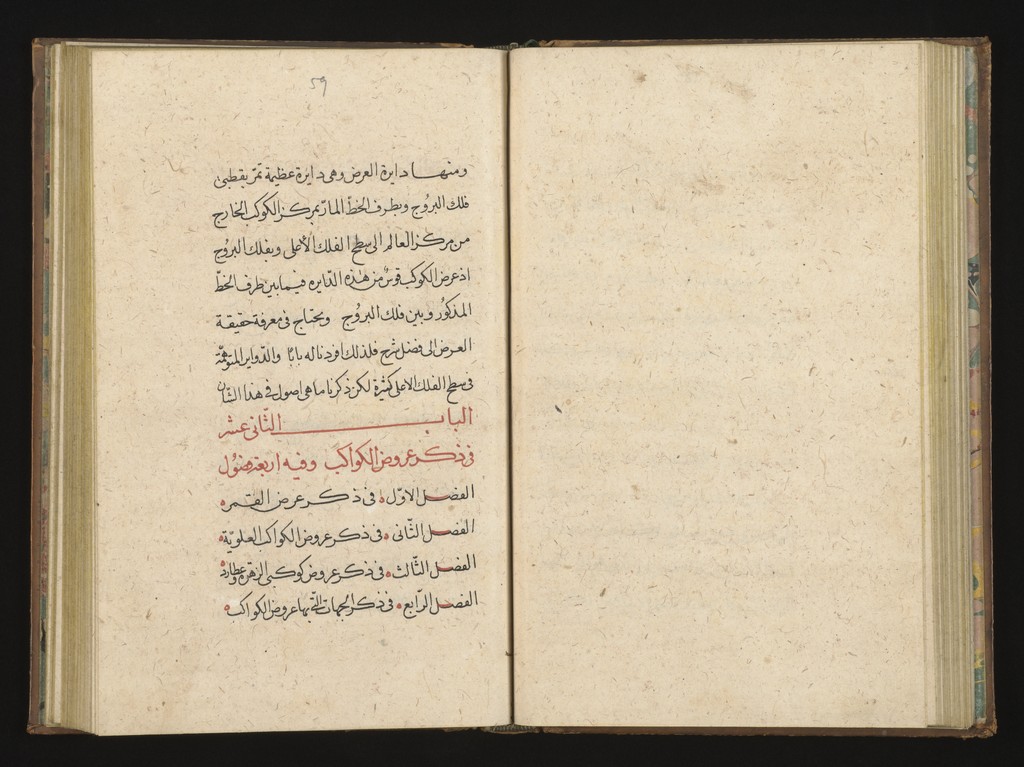 59
ومنها دايرة العرض وهى دايرة عظيمة تمرّ بقطبى
فلك البروج وبطرف الخطّ المارّ بمركز الكوكب الخارج
من مركز العالم الى سطح الفلك الأعلى وبفلك البروج
اذ عرض الكوكب قوس من هذه الدّايره فيما بين طرف الخطّ
المذكور وبين فلك البروج ويحتاج فى معرفة حقيقة
العرض الى فضل شرح فلذلك افردنا له بابًا والدّواير المتوهّمة
فى سطح الفلك الاعلى كثيرة لكن ذكرنا ما هى اصول فى هذا الشّان
الباب الثّانى عشر
فى ذكر عروض الكواكب وفيه اربعة فصُول
الفصل الاوّل فى ذكر عرض القمر
الفصل الثّانى فى ذكر عروض الكواكب العلويّة
الفصل الثّالث فى ذكر عروض كوكبى الزهرة وعطارد
الفصل الرّابع فى ذكر الجهات الّتى بها عروض الكواكب